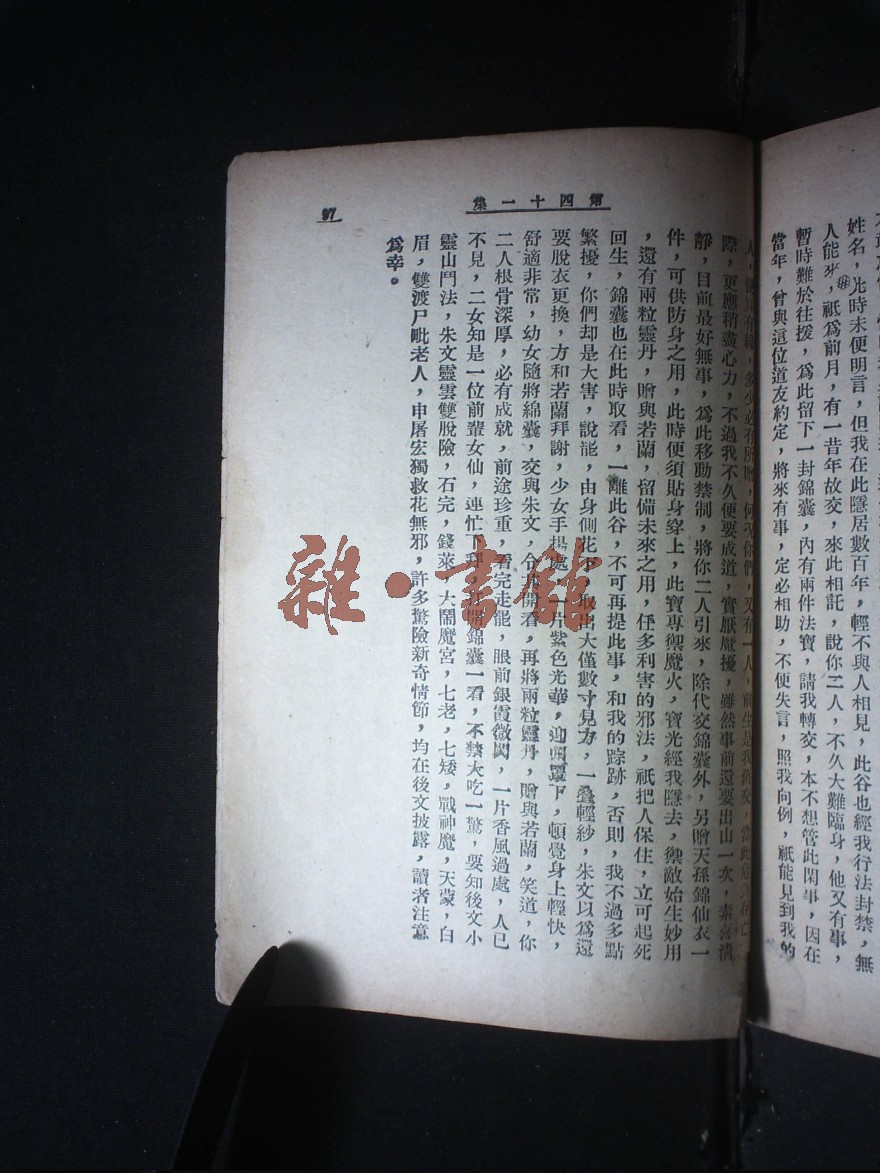 姓名，此時未便明言，但我在此隱居數百年，輕不與人相見，此谷也經我行法封禁，無
人能來，祇爲前月，有一昔年故交，來此相託，說你二人，不久大難臨身，他又有事，
暫時難於往援，爲此留下一封錦囊，內有兩件法寶，請我轉交，本不想管此閑事，因在
當年，曾與這位道友約定，將來有事，定必相助，不便失言，照我向例，祇能見到我的
第四十一集
97
人，便是有緣，多少必有所贈，何况你們，又有一人，前生是我舊交，當此危急存亡
際，更應稍盡心力，不過我不久便要成道，實厭魔擾，雖然事前還要出山一次，素喜清
靜，目前最好無事，爲此移動禁制，將你二人引來，除代交錦囊外，另贈天孫錦仙衣一
件，可供防身之用，此時便須貼身穿上，此寶專禦魔火，寶光經我隱去，禦敵始生妙用
，還有兩粒靈丹，贈與若蘭，留備未來之用，任多利害的邪法，祇把人保住，立可起死
回生，錦囊也在此時取看，一離此谷，不可再提此事，和我的踪跡，否則，我不過多點
繁擾，你們却是大害，說罷，由身側花 取出大僅數寸見方，一叠輕紗，朱文以爲還
要脫衣更換，方和若蘭拜謝，少女手揚處，一片紫色光華，迎面罩下，頓覺身上輕快，
舒適非常，幼女隨將綿囊，交與朱文，令 開看，再將兩粒靈丹，贈與若蘭，笑道，你
二人根骨深厚，必有成就，前途珍重，看完走罷，眼前銀霞微閃，一片香風過處，人已
不見，二女知是一位前輩女仙，連忙下拜， 開錦囊一看，不禁大吃一驚，要知後文小
靈山鬥法，朱文靈雲雙脫險，石完，錢萊，大鬧魔宮，七老，七矮，戰神魔，天蒙，白
眉，雙渡尸毗老人，申屠宏獨救花無邪，許多驚險新奇情節，均在後文披露，讀者注意
爲幸。
雜·書館